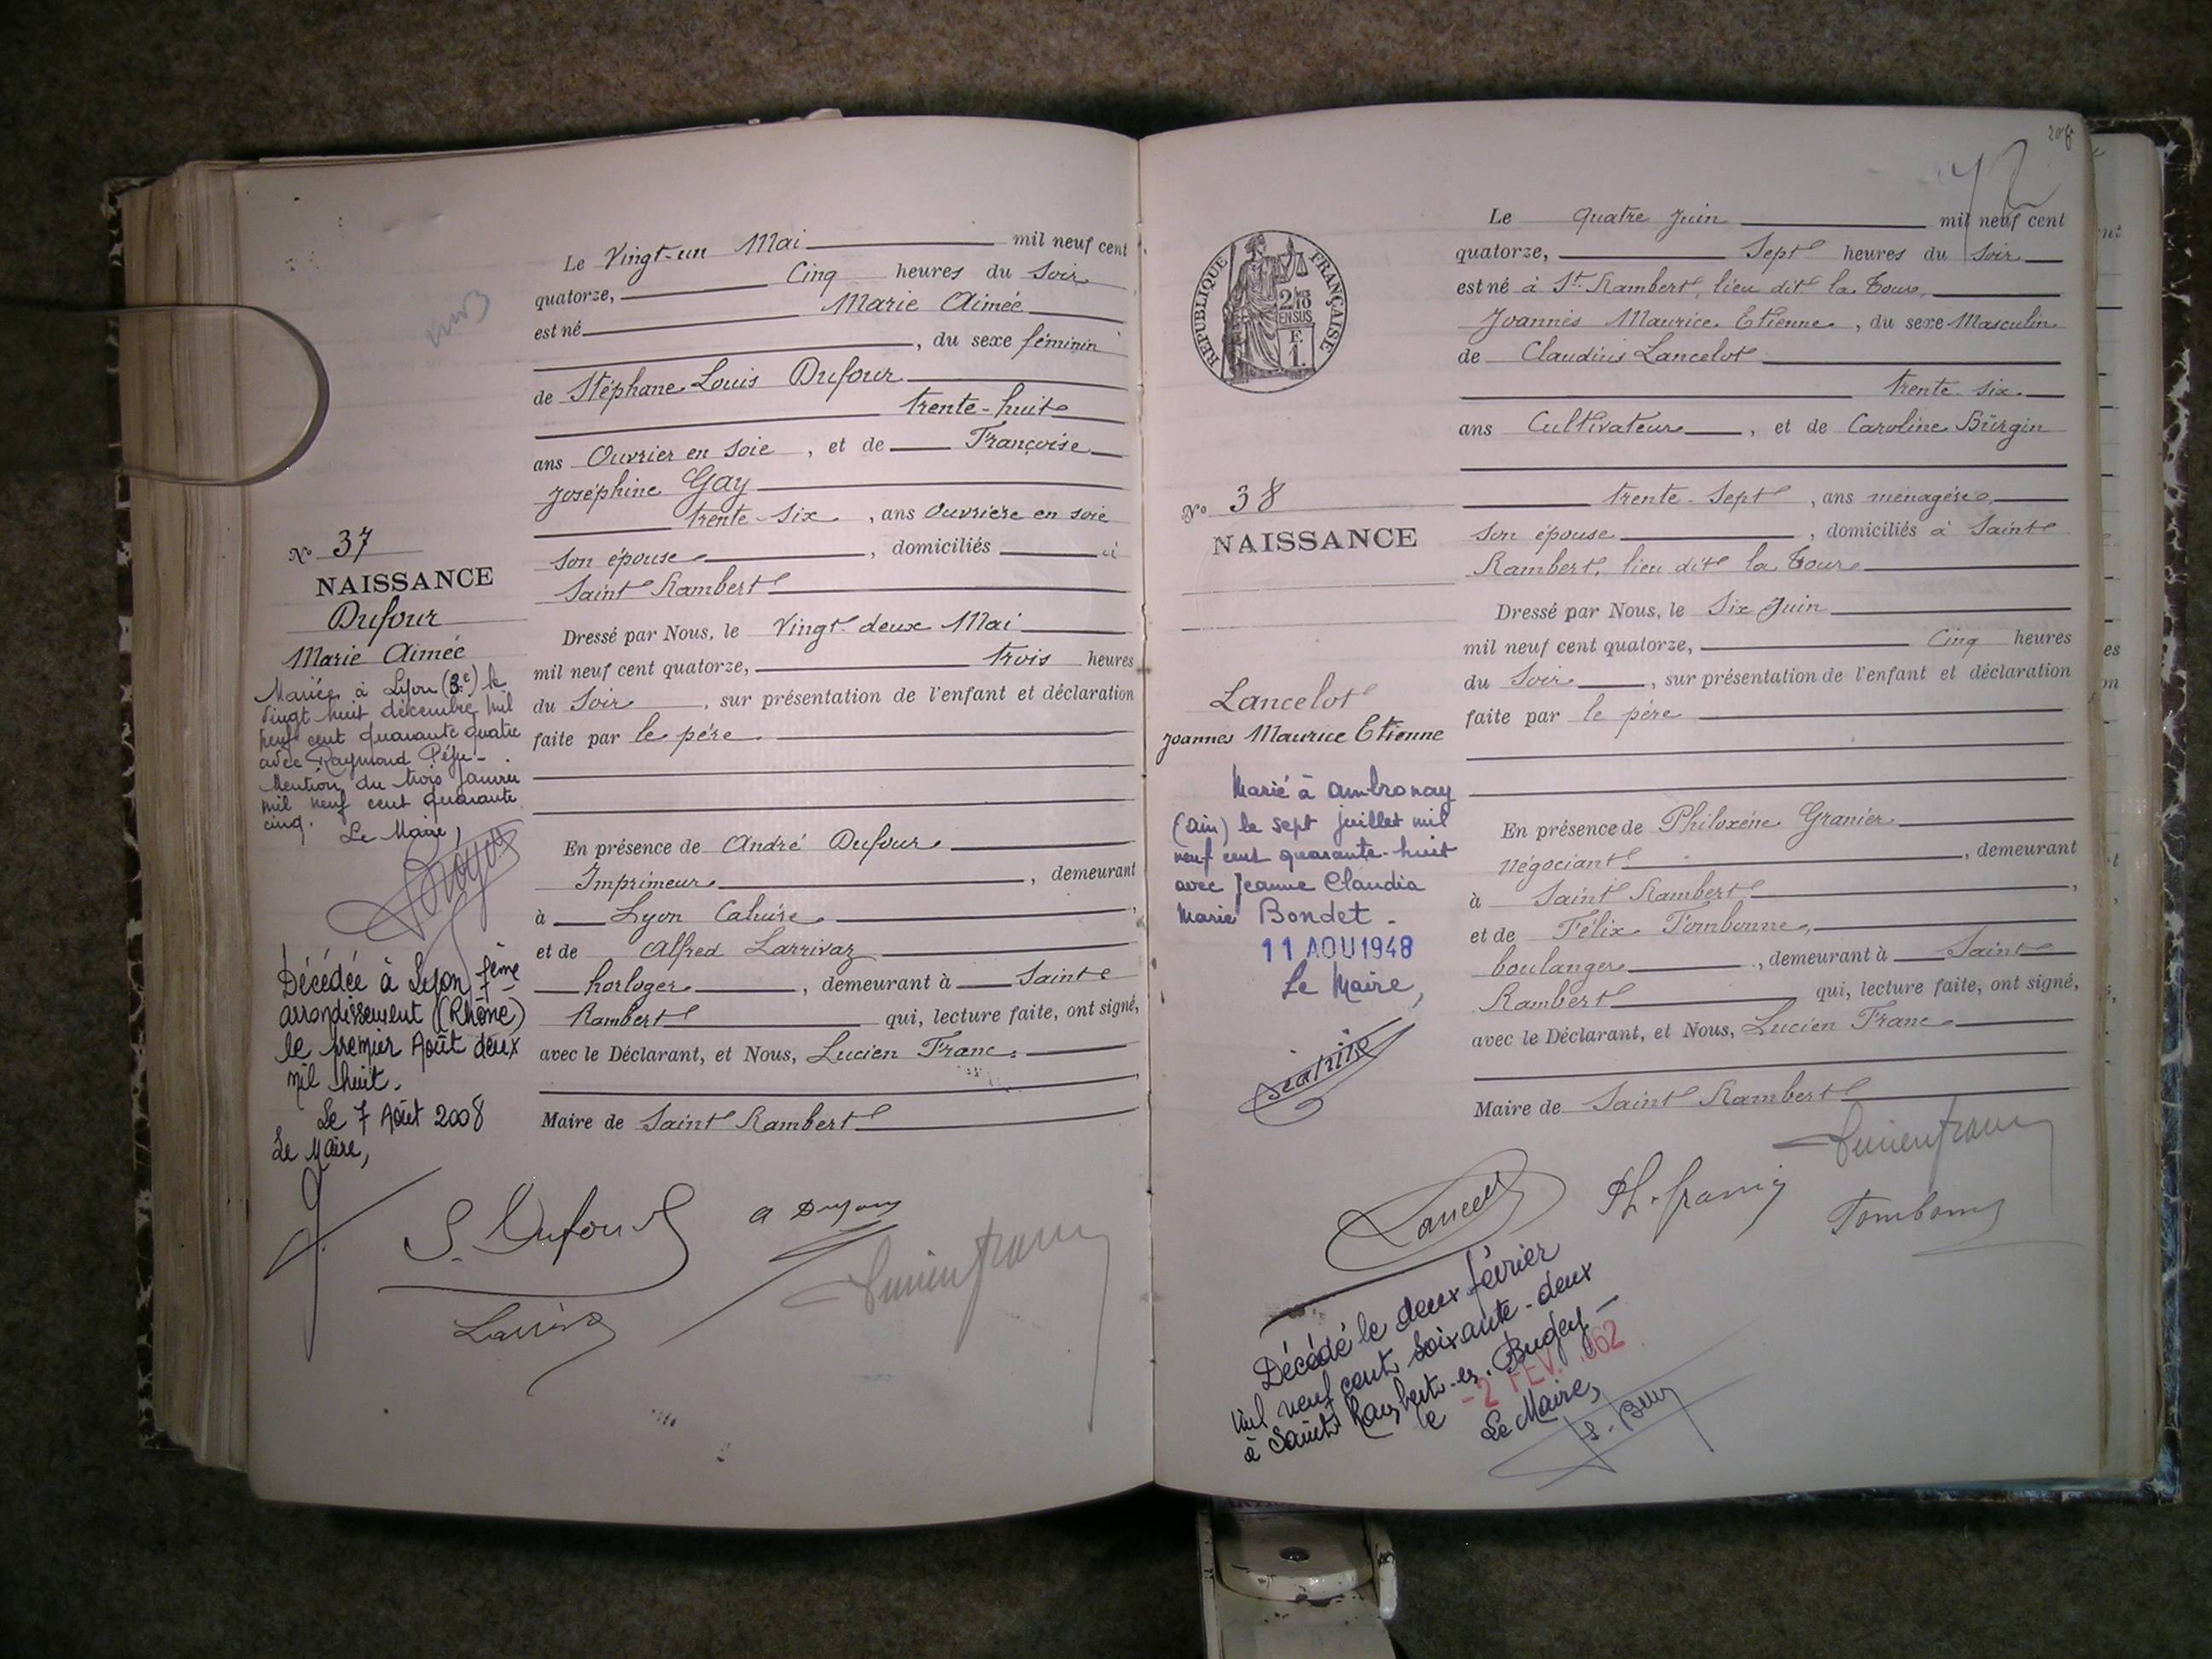 Le Vingt-un Mai mil neuf cent
quatorze, Cinq heures du Soir
est né Marie Aimée
, du sexe féminin
de Stéphane Louis Dufour
trente-huit
ans Ouvrier en soie, et de Françoise
Joséphine Gay
trente-six, ans Ouvrière en soie
son épouse, domiciliés à
Saint Rambert
Dressé par Nous, le Vingt-deux Mai
mil neuf cent quatorze, trois heures
du Soir, sur présentation de l'enfant et déclaration
faite par le père.
En présence de André Dufour
Imprimeur, demeurant
à Lyon Caluire,
et de Alfred Larrivaz
horloger, demeurant à Saint
Rambert qui, lecture faite, ont signé,
avec le Déclarant, et Nous, Lucien Franc,
Maire de Saint Rambert
N° 37
NAISSANCE
Dufour
Marie Aimée
Mariée à Lyon (3e) le
vingt huit décembre mil
neuf cent quarante quatre
avec Raymond
Mention du trois janvier
mil neuf cent quarante
cinq. Le Maire,
Décédée à Lyon 7ème
arrondissement (Rhône)
le premier Août deux
mil huit.
Le 7 Août 2008
Le Maire,
S. Dufour
A Dufour
Larrivaz
Lucien Franc
Le quatre Juin mil neuf cent
quatorze, Sept heures du Soir
est né à St. Rambert, lieu dit la Tour,
Joannès Maurice Etienne, du sexe Masculin
de Claudius Lancelot
trente-six
ans Cultivateur, et de Caroline Bürgin
trente-Sept, ans ménagère,
son épouse, domiciliés à Saint
Rambert, lieu dit la Tour
Dressé par Nous, le Six Juin
mil neuf cent quatorze, Cinq heures
du Soir, sur présentation de l'enfant et déclaration
faite par le père
En présence de Philoxène Granier
négociant, demeurant
à Saint Rambert,
et de Félix Tombonne,
boulanger, demeurant à Saint
Rambert qui, lecture faite, ont signé,
avec le Déclarant, et Nous, Lucien Franc
Maire de Saint Rambert
REPUBLIQUE FRANÇAISE
2/10 EN SUS
F.
1.
N° 38
NAISSANCE
Lancelot
Joannès Maurice Etienne
Marié à Ambronay
(Ain) le sept juillet mil
neuf cent quarante-huit
avec Jeanne Claudia
Marie Bondet -
11 AOU 1948
Le Maire,
Lancelot
Ph. Granier
Lucien Franc
Tombonne
Décédé le deux février
mil neuf cent soixante-deux
à Saint Rambert-en-Bugey -
le -2 FEV. 1962
Le Maire,